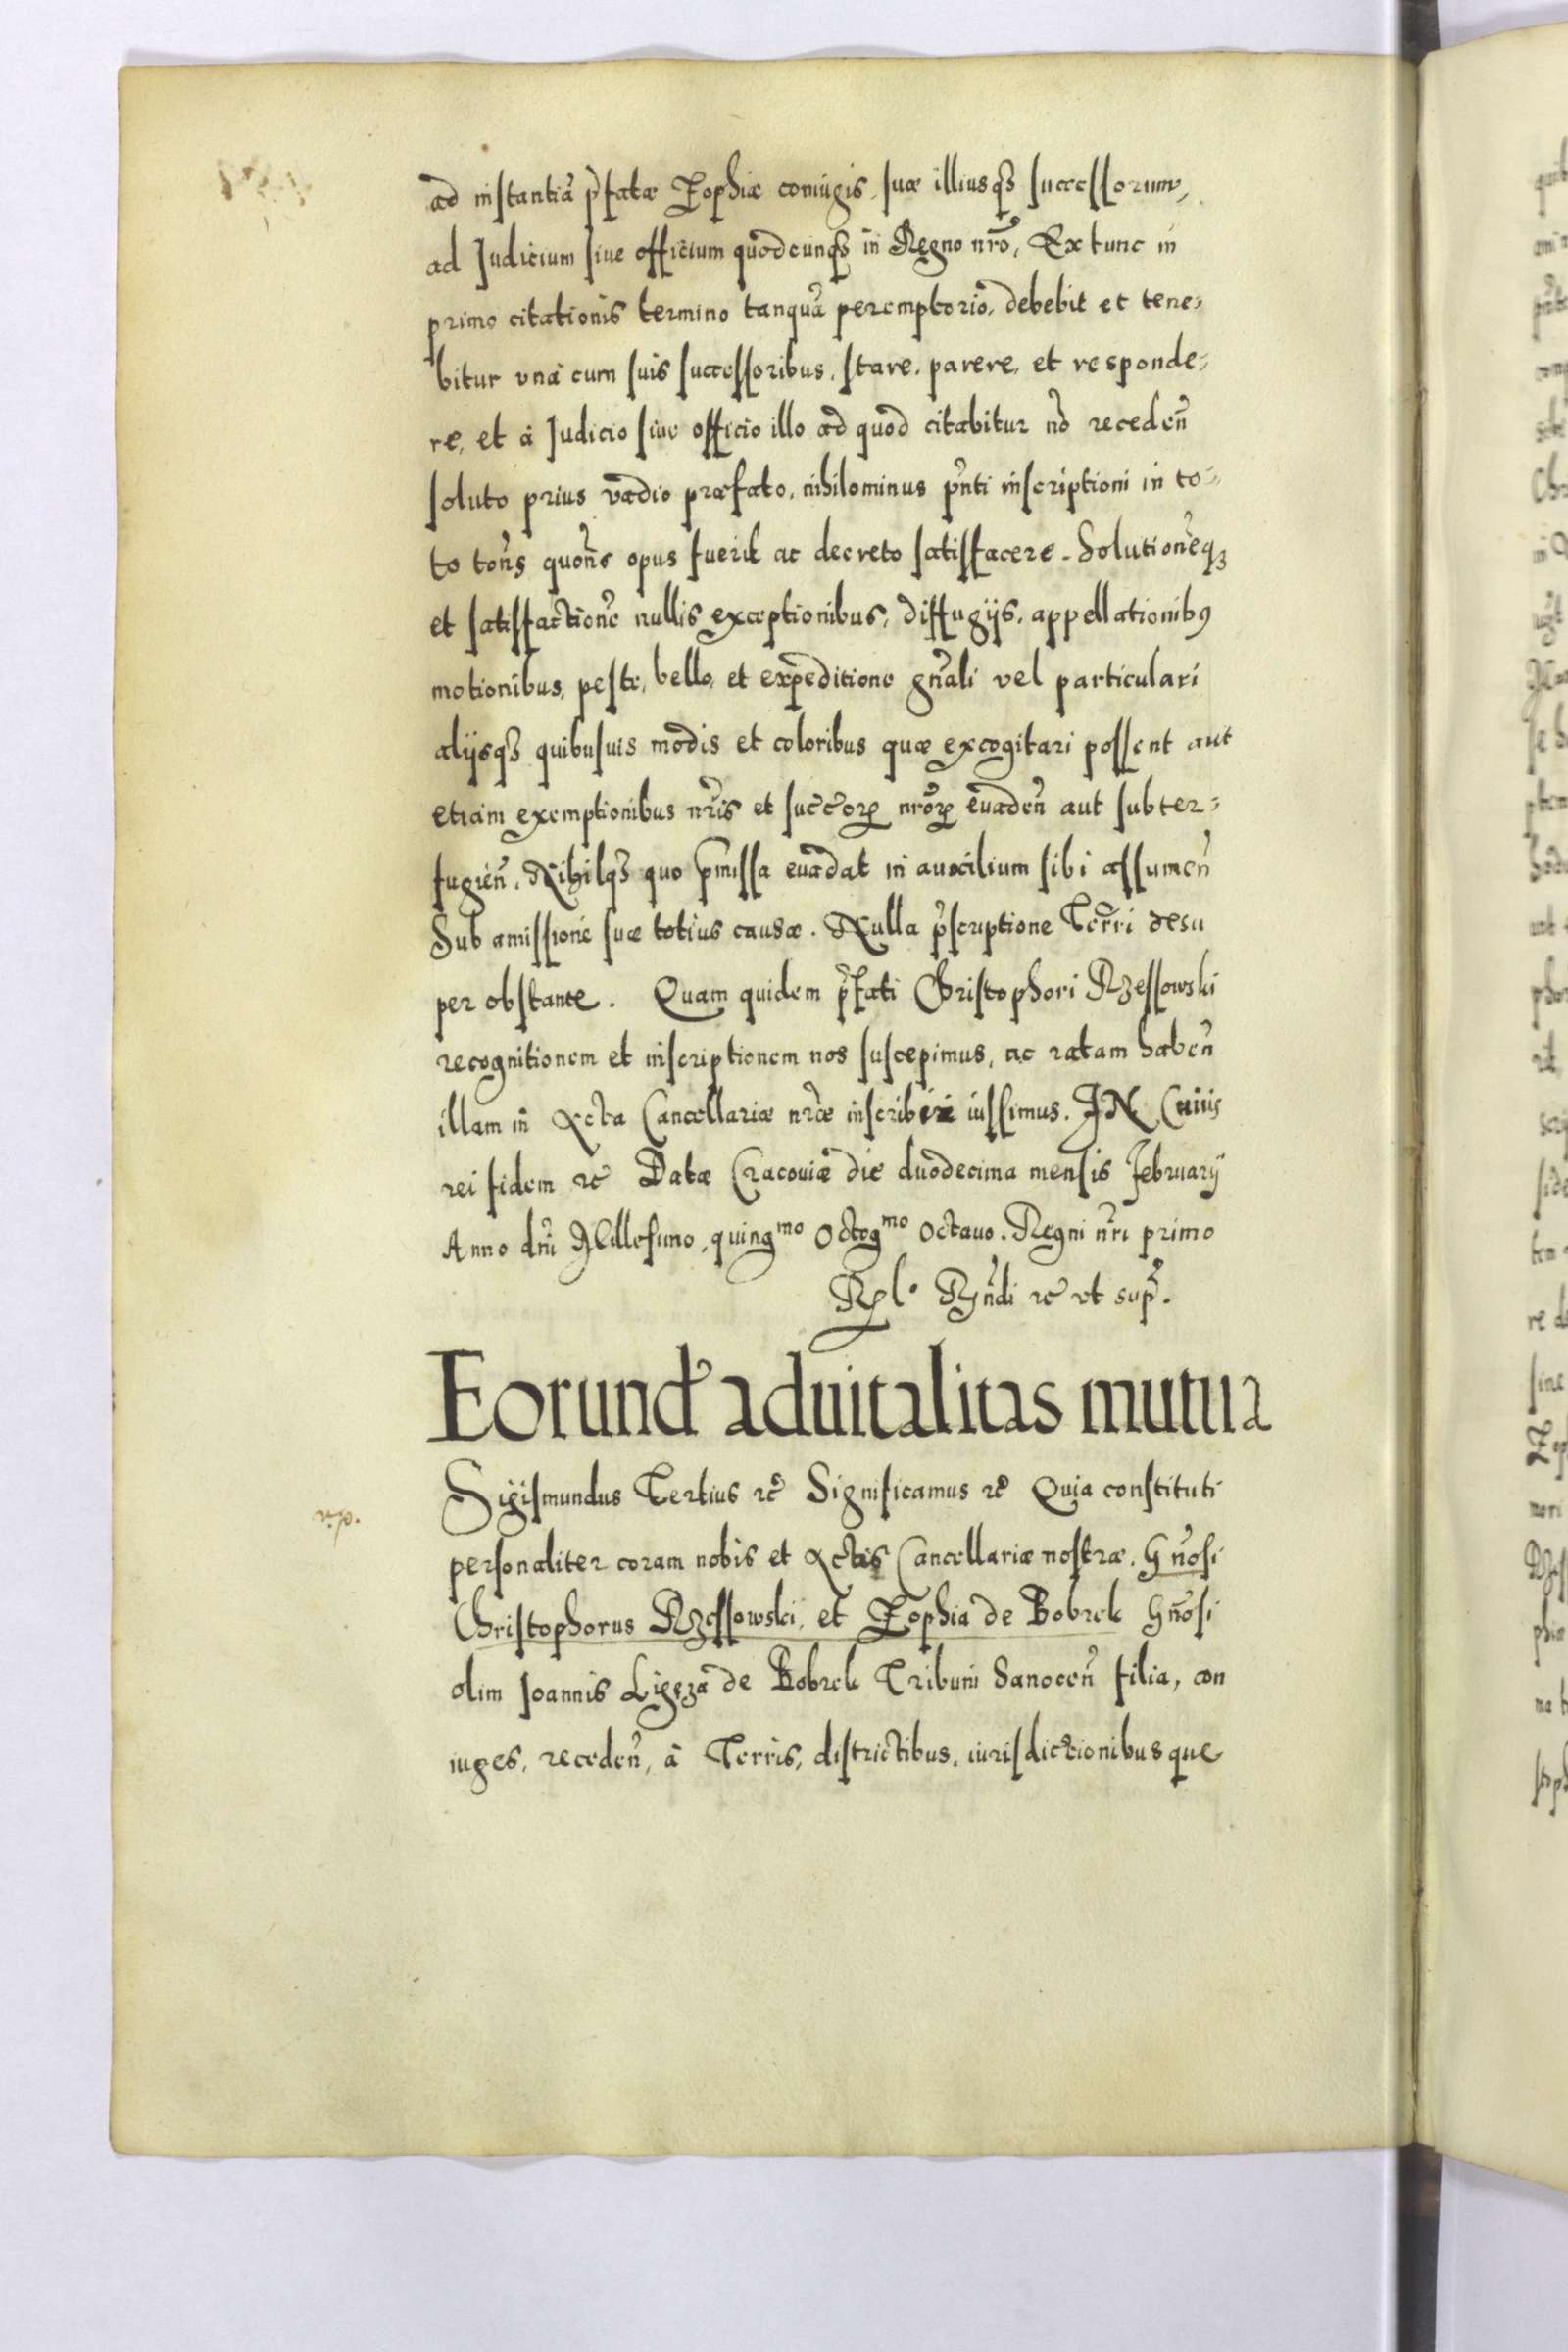 ad instantiā p̄fatæ Zophiæ coniugis suæ illiusq₃ successorum,
ad Judicium siue officium quodcunq₃ in Regno nr̄o, Ex tunc in
primo citationis termino tanquā peremptorio, debebit et tene-
bitur vna cum suis successoribus, stare, parere, et responde-
re, et à Judicio siue officio illo ad quod citabitur nō receden̄
soluto prius vadio præfato, nihilominus pn̄ti inscriptioni in to-
to ton̄s quon̄s opus fuerit ac decreto satisfacere. Solutionēq₃
et satisfactionē nullis exceptionibus, diffugijs, appellationibꝯ
motionibus, peste, bello, et expeditione gn̄ali vel particulari
alijsq₃ quibusuis modis et coloribus quæ excogitari possent aut
etiam exemptionibus nr̄is et succ̄orꝝ nr̄orꝝ euaden̄ aut subter-
fugien̄, Nihilq₃ quo p̄missa euadat in auxilium sibi assumen̄
Sub amissione suæ totius causæ. Nulla p̄scriptione Terr̄i desu
per obstante. Quam quidem p̄fati Christophori Rzessowski
recognitionem et inscriptionem nos suscepimus, ac ratam haben̄
illam in Acta Cancellariæ nr̄æ inscribi iussimus. IN Cuius
rei fidem ꝛc̄ Datæ Cracouiæ die duodecima mensis February
Anno dn̄i Millesimo, quingmo Octogmo Octauo. Regni nr̄i primo
Rꝑl. Rn̄di ꝛc̄ vt sup̄.
Eorund̄ aduitalitas mutua
Sigismundus Tertius ꝛc̄ Significamus ꝛc̄ Quia constituti
personaliter coram nobis et Actis Cancellariæ nostræ, Gn̄osi
Christophorus Rzessowski, et Zophia de Bobrek Gn̄osi
olim Joannis Ligęza de Bobrek Tribuni Sanocen̄ filia, con
iuges, receden̄, à Terris, districtibus, iurisdictionibusque